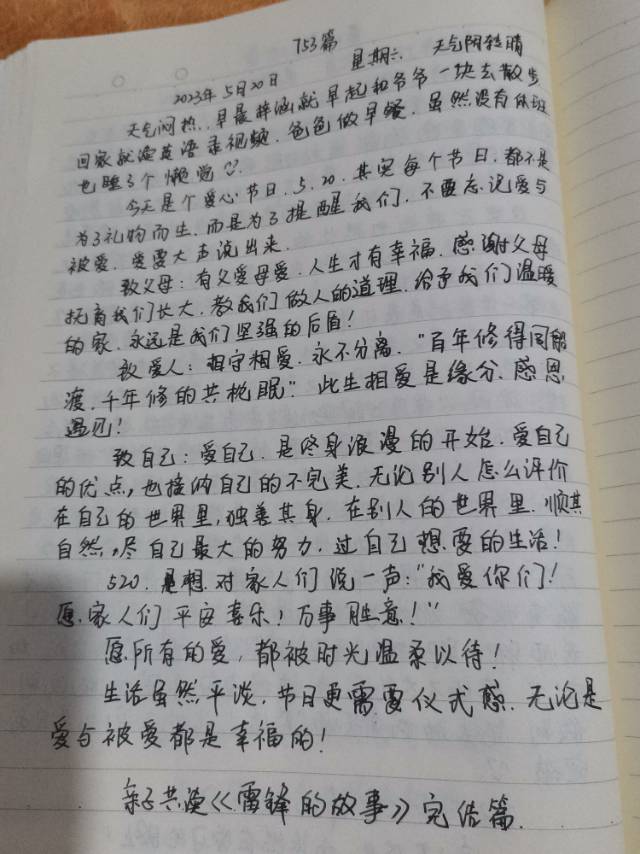 753篇
2023年5月20日 星期六 天气阴转晴
天气闷热,早晨梓涵就早起和爷爷一块去散步
回家就读英语录视频.爸爸做早餐.虽然没有休班
也睡了个懒觉
今天是个爱心节日.5.20.其实每个节日.都不是
为了礼物而生.而是为了提醒我们.不要忘记爱与
被爱.爱要大声说出来.
致父母:有父爱母爱.人生才有幸福.感谢父母
抚育我们长大.教我们做人的道理.给予我们温暖
的家.永远是我们坚强的后盾!
致爱人:相守相爱.永不分离."百年修得同船
渡.千年修的共枕眠"此生相爱是缘分.感恩
遇见!
致自己:爱自己.是终身浪漫的开始.爱自己
的优点,也接纳自己的不完美.无论别人怎么评价
在自己的世界里,独善其身.在别人的世界里.顺其
自然,尽自己最大的努力.过自己想要的生活!
520.想对家人们说一声:"我爱你们!
愿.家人们平安喜乐!万事胜意!"
愿所有的爱,都被时光温柔以待!
生活虽然平淡.节日更需要仪式感.无论是
爱与被爱都是幸福的!
亲子共读《雷锋的故事》完结篇.